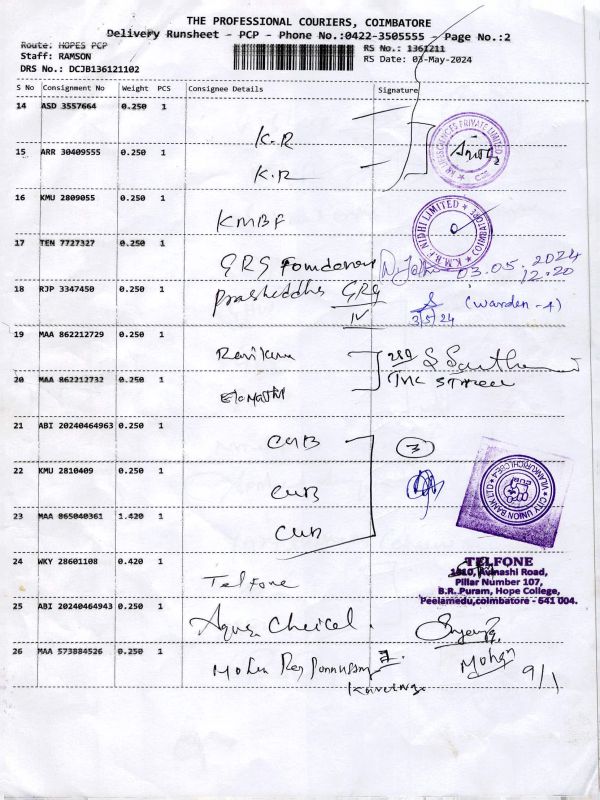 THE PROFESSIONAL COURIERS, COIMBATORE
Delivery Runsheet - PCP - Phone No.:0422-3505555 - Page No.:2
Route: HOPES PCP
RS No.: 1361211
Staff: RAMSON
RS Date: 03-May-2024
DRS No.: DCJB136121102
S No Consignment No Weight PCS Consignee Details Signature
14 ASD 3557664 0.250 1 K.R
15 ARR 30409555 0.250 1 K.R
16 KMU 2809055 0.250 1 KMBF
K.M.B.F. NIDHI LIMITED COIMBATORE
17 TEN 7727327 0.250 1 GRG
03.05.2024
12.20
18 RJP 3347450 0.250 1 GRG
IV
(Warden -4)
3/5/24
19 MAA 862212729 0.250 1
20 MAA 862212732 0.250 1 Elamathi
21 ABI 20240464963 0.250 1 CUB
3
22 KMU 2810409 0.250 1 CUB
CITY UNION BANK LTD
23 MAA 865040361 1.420 1 CUB
24 WKY 28601108 0.420 1 Telfone
TELFONE
Avinashi Road,
Pillar Number 107,
B.R. Puram, Hope College,
Peelamedu,coimbatore - 641 004.
25 ABI 20240464943 0.250 1
26 MAA 573884526 0.250 1 Mohan
9/1